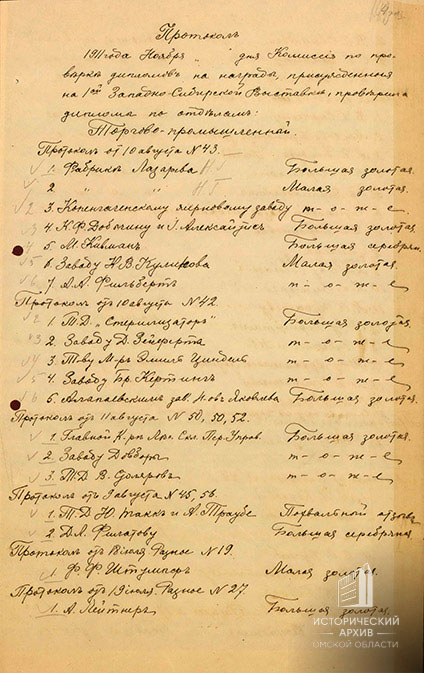 Протоколъ
1911 года Ноября " " дня Комиссія по про-
вѣркѣ дипломовъ на награды, присужденные
на 1ой Западно-Сибирской Выставкѣ, провѣрила
диплома по отдѣламъ:
Торгово-промышленной.
Протоколъ отъ 10 августа N 43.
1. Фабрика Лазарева Большая золотая.
2 " " Малая золотая.
3. Копенгагенскому заводу т-о-ж-е
4. К.Ф. Добычину и І. Большая золотая
5. М. Большая серебрян.
6. Заводу Н.В. Куликова Малая золотая.
7. А.А. Фильбертъ т-о-ж-е
Протоколъ отъ 10 августа N 42.
1. Т.Д. „Стерилизаторъ" Большая золотая.
2. Заводу Д. Зейферта т-о-ж-е
3. Т-ву М-ръ Эмиля Циндель т-о-ж-е
4. Заводу Бр. Кертингъ т-о-ж-е
5. Алапаевскимъ зав. Н-овъ Яковлева Большая золотая.
Протоколъ отъ 11 августа N 50, 50, 52.
1. Главной Скл. Большая золотая.
2. Заводу т-о-ж-е
3. Т.Д. В. Столяровъ т-о-ж-е
Протоколъ отъ 9 августа N 45, 56.
1. Т.Д. Н. и А. Траубе Похвальной отзывъ
2. Д.Л. Филатову Большая серебряна
Протоколъ отъ іюля Разное N 19.
1. Ф.Ф. Штумпфъ Малая золотая.
Протоколъ отъ 19 іюля Разное N 27.
1. А. Лейтнеръ Большая золотая.
ИСТОРИЧЕСКИЙ
АРХИВ
ОМСКОЙ ОБЛАСТИ